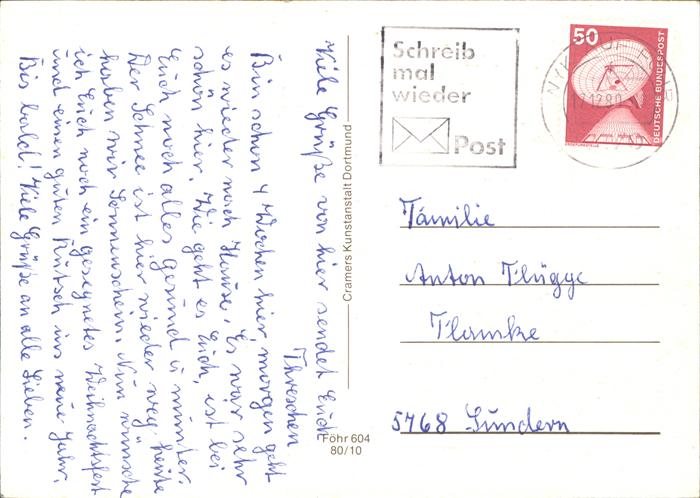 Viele Grüße von hier sendet Euch
Threschen
Bin schon 4 Wochen hier, morgen geht
es wieder nach Hause. Es war sehr
schön hier. Wie geht es Euch, ist bei
Euch noch alles gesund u munter.
Der Schnee ist hier wieder weg, heute
haben wir Sonnenschein. Nun wünsche
ich Euch noch ein gesegnetes Weihnachtsfest
und einen guten Rutsch ins neue Jahr.
Bis bald! Viele Grüße an alle Lieben.
Cramers Kunstanstalt Dortmund
Föhr 604
80/10
Schreib
mal
wieder
Post
50
DEUTSCHE BUNDESPOST
Familie
Anton Flügge
Flamke
5768 Sundern